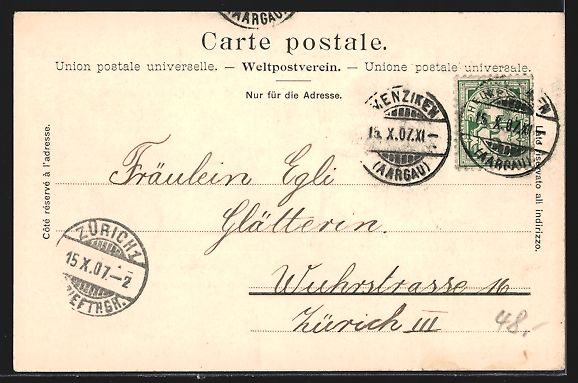 (AARGAU)
Carte postale.
Union postale universelle. — Weltpostverein. — Unione postale universale.
Nur für die Adresse.
MENZIKEN
15. X. 07. XI
(AARGAU)
15. X. 07. XI
(AARGAU)
Côté réservé à l'adresse.
Lato riservato all indirizzo.
Fräulein Egli
Glätterin.
Wuhrstrasse 16
Zürich III
ZÜRICH 1
15. X. 07. - 2
48,-